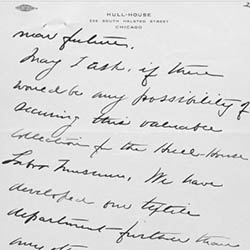 HULL-HOUSE
335 SOUTH HALSTED STREET
CHICAGO
near future.
May I ask, if there
would be any possibility of
securing this valuable
collection for the Hull-House
Labor Museum. We have
developed our textile
department further than
any